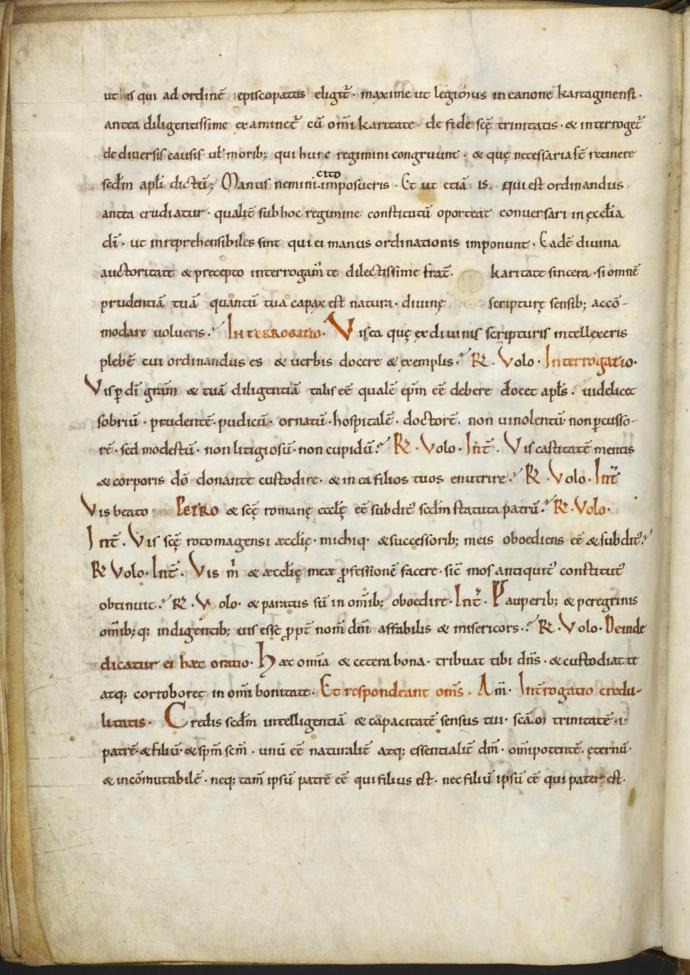 ut is qui ad ordinē episcopatus eligit᷒ · maxime ut legim᷒ in canone kartaginensi ·
antea diligentissime examinet᷒ cū om̄i karitate · de fide scę̄ trinitatis · & interroget᷒
de diversis causis ul̄ morib; qui huic regimini congruunt · & quę necessaria sē retinere
sēdm apl̄i dictū; Manus nemini cito imposueris · Et ut etiā is · qui est ordinandus
antea erudiatur · qualit̄ sub hoc regimine constitutū oporteat conversari in ęcclīa
dī · ut inreprehensibiles sint qui ei manus ordinationis imponunt · Eadē divina
auctoritate & precepto interrogam᷒ te dilectissime frat̄ · karitate sincera · si omnē
prudentiā tuā quantū tua capax est natura · divinę scripturę sensib; accō-
modare volueris · INTERROGATIO · Vis ea quę ex divinis scripturis intellexeris
plebē cui ordinandus es & verbis docere & exemplis · R̄ · Volo · Interrogatio ·
Vis p̄ dī grām & tuā diligentiā talis eē qualē ep̄m eē debere docet apl̄s · uidelicet
sobriū · prudentē · pudicū · ornatū · hospitalē · doctorē · non uinolentū non p̄cusso-
rē · sed modestū · non litigiosū · non cupidū · R̄ · Volo · Int̄ · Vis castitatē mentis
& corporis dō donante custodire · & in ea filios tuos enutrire · R̄ · Volo · Int̄
Vis beato PETRO & scę̄ romanę ęcclę̄ eē subdit᷒ sēdm statuta patrū · R̄ · Volo ·
Int̄ · Vis scę̄ rotomagensi æcclię · michiq · & successorib; meis oboediens eē & subdit᷒
R̄ Volo · Int̄ · Vis m̄ & æcclię meæ p̄fessionē facere · sic̄ mos antiquit᷒ constitut᷒
obtinuit · R̄ · Volo · & paratus sū in om̄ib; oboedire · Int̄ · Pauperib; & peregrinis
om̄ib; q: indigentib; vis esse p̄pt̄ nom̄ dn̄i affabilis & misericors · R̄ · Volo · Deinde
dicatur ei hæc oratio · Hæc om̄ia & cetera bona · tribuat tibi dn̄s · & custodiat te
atq; corroboret in om̄i bonitate · Et respondeant om̄s · Am̄ · Interrogatio credu-
litatis · Credis sēdm intelligentiā & capacitatē sensus tui · scā m̄ trinitatē · i ·
patrē & filiū & sp̄m scm̄ · unū eē naturalit̄ atq; essentialit̄ dm̄ · om̄ipotentē · ęternū ·
& incōmutabilē · neq; tam̄ ipsū patrē eē qui filius est · nec filiū ipsū eē qui pater est ·